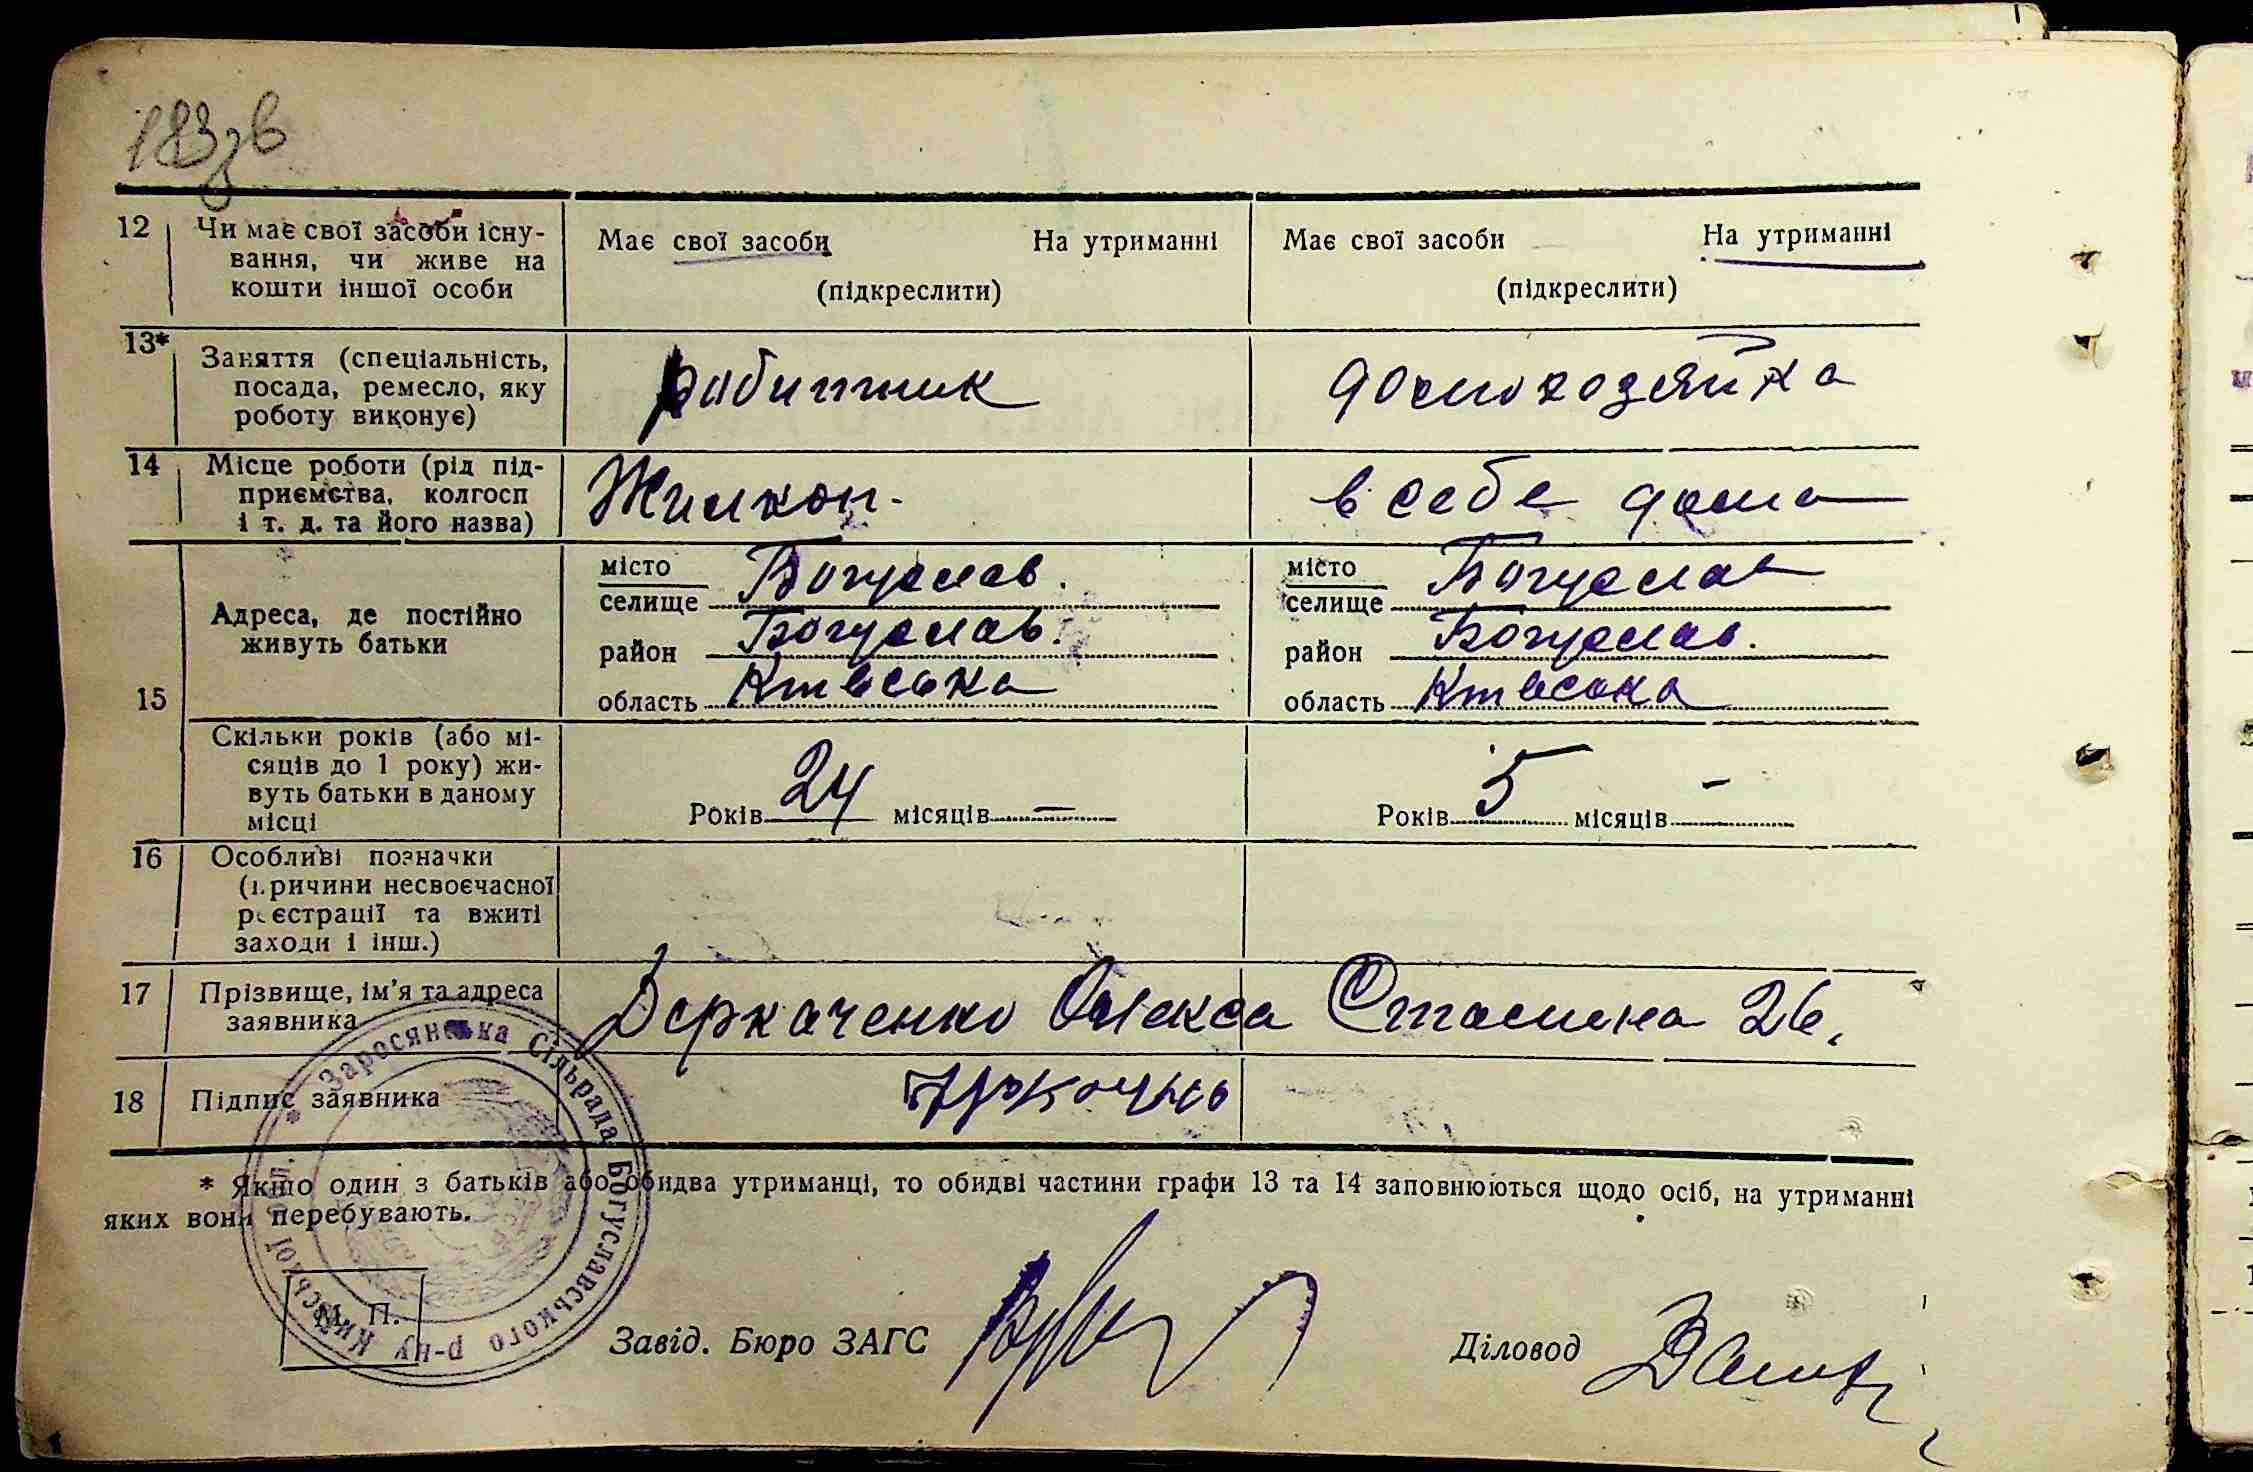 183зв
12 Чи має свої засоби існу-
вання, чи живе на
кошти іншої особи
Має свої засоби На утриманні
(підкреслити)
Має свої засоби На утриманні
(підкреслити)
13* Заняття (спеціальність,
посада, ремесло, яку
роботу виконує)
робитник
домохозяйка
14 Місце роботи (рід під-
приємства, колгосп
і т. д. та його назва)
Жилкоп.
в себе дома
15
Адреса, де постійно
живуть батьки
місто
селище Богуслав.
район Богуслав.
область Київська
місто
селище Богуслав
район Богуслав.
область Київська
Скільки років (або мі-
сяців до 1 року) жи-
вуть батьки в даному
місці
Років 24 місяців —
Років 5 місяців —
16 Особливі позначки
(причини несвоєчасної
реєстрації та вжиті
заходи і інш.)
17 Прізвище, ім'я та адреса
заявника
Деркаченко Олекса Сталина 26.
18 Підпис заявника
* Заросянська Сільрада Богуславського р-ну Київської обл.
* Якщо один з батьків або обидва утриманці, то обидві частини графи 13 та 14 заповнюються щодо осіб, на утриманні
яких вони перебувають.
М. П.
Завід. Бюро ЗАГС
Діловод